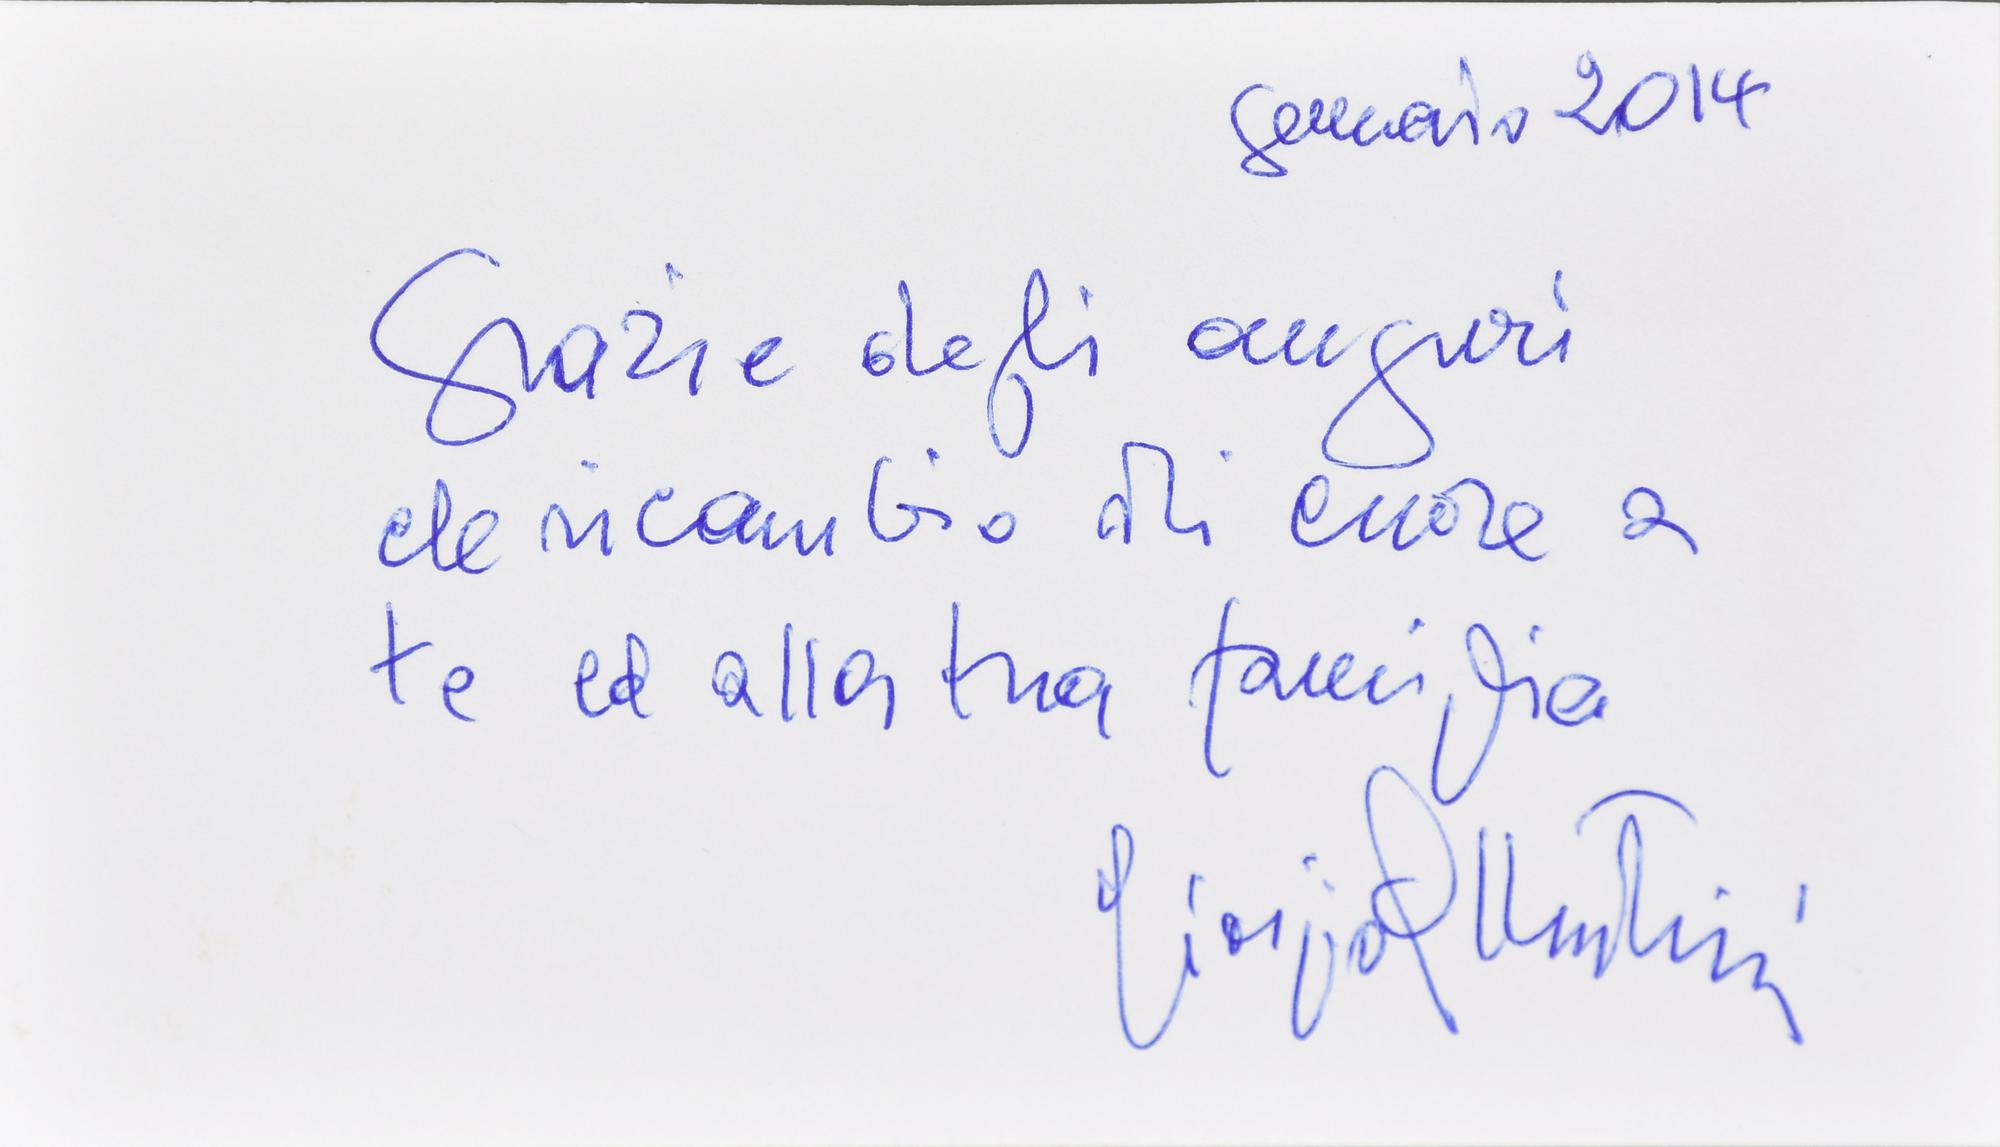 gennaio 2014
Grazie degli auguri
che ricambio di cuore a
te ed alla tua famiglia